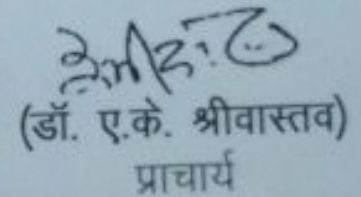 (डॉ. ए.के. श्रीवास्तव)
प्राचार्य